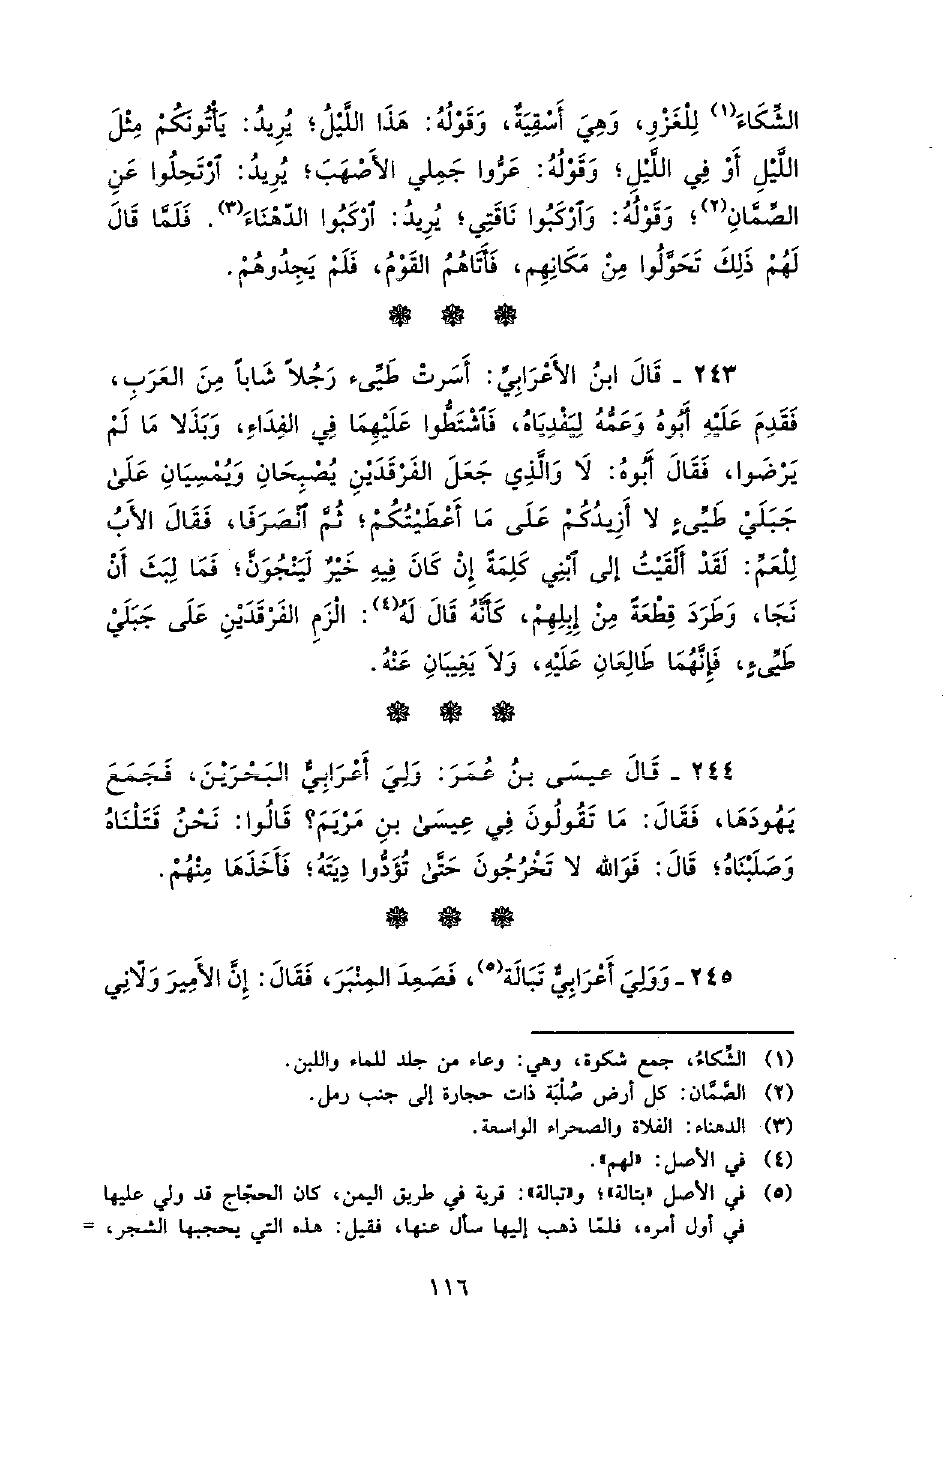 الشِّكَاءَ(١) لِلْغَزْوِ، وَهِيَ أَسْقِيَةٌ، وَقَوْلُهُ: هَذَا اللَّيْلُ؛ يُرِيدُ: يَأْتُونَكُمْ مِثْلَ
اللَّيْلِ أَوْ فِي اللَّيْلِ؛ وَقَوْلُهُ: عَرُّوا جَمَلِي الأَصْهَبَ؛ يُرِيدُ: ٱرْتَحِلُوا عَنِ
الصَّمَّانِ(٢)؛ وَقَوْلُهُ: وَٱرْكَبُوا نَاقَتِي؛ يُرِيدُ: ٱرْكَبُوا الدَّهْنَاءَ(٣). فَلَمَّا قَالَ
لَهُمْ ذَلِكَ تَحَوَّلُوا مِنْ مَكَانِهِم، فَأَتَاهُمُ القَوْمُ، فَلَمْ يَجِدُوهُمْ.
٢٤٣ ـ قَالَ ابنُ الأَعْرَابِيِّ: أَسَرتْ طَيِّىء رَجُلاً شَاباً مِنَ العَرَبِ،
فَقَدِمَ عَلَيْهِ أَبُوهُ وَعَمُّهُ لِيَفْدِيَاهُ، فَٱشْتَطُّوا عَلَيْهِمَا فِي الفِدَاءِ، وَبَذَلا مَا لَمْ
يَرْضَوا، فَقَالَ أَبُوهُ: لَا وَالَّذِي جَعَلَ الفَرْقَدَيْنِ يُصْبِحَانِ وَيُمْسِيَانِ عَلَىٰ
جَبَلَيْ طَيِّىءٍ لا أَزِيدُكُمْ عَلَى مَا أَعْطَيْتُكُمْ؛ ثُمَّ ٱنْصَرَفَا، فَقَالَ الأَبُ
لِلْعَمِّ: لَقَدْ أَلْقَيْتُ إلى ٱبْنِي كَلِمَةً إِنْ كَانَ فِيهِ خَيْرٌ لَيَنْجُوَنَّ؛ فَمَا لَبِثَ أَنْ
نَجَا، وَطَرَدَ قِطْعَةً مِنْ إِبِلِهِمْ، كَأَنَّهُ قَالَ لَهُ(٤): الْزَمِ الفَرْقَدَيْنِ عَلَى جَبَلَيْ
طَيِّىءٍ، فَإِنَّهُمَا طَالِعَانِ عَلَيْهِ، وَلَا يَغِيبَانِ عَنْهُ.
٢٤٤ ـ قَالَ عيسَى بنُ عُمَرَ: وَلِيَ أَعْرَابِيٌّ البَحْرَيْنَ، فَجَمَعَ
يَهُودَهَا، فَقَالَ: مَا تَقُولُونَ فِي عِيسَىٰ بنِ مَرْيَمَ؟ قَالُوا: نَحْنُ قَتَلْنَاهُ
وَصَلَبْنَاهُ؛ قَالَ: فَوَالله لا تَخْرُجُونَ حَتَّىٰ تُؤَدُّوا دِيَتَهُ؛ فَأَخَذَهَا مِنْهُمْ.
٢٤٥ ـ وَوَلِيَ أَعْرَابِيٌّ تَبَالَة(٥)، فَصَعِدَ المِنْبَرَ، فَقَالَ: إِنَّ الأَمِيرَ وَلَّانِي
(١) الشِّكَاءُ، جمع شكوة، وهي: وعاء من جلد للماء واللبن.
(٢) الصَّمَّان: كل أرض صُلْبَة ذات حجارة إلى جنب رمل.
(٣) الدهناء: الفلاة والصحراء الواسعة.
(٤) في الأصل: «لهم».
(٥) في الأصل «بتالة»؛ و«تبالة»: قرية في طريق اليمن، كان الحجّاج قد ولي عليها
في أول أمره، فلمّا ذهب إليها سأل عنها، فقيل: هذه التي يحجبها الشجر، =
١١٦